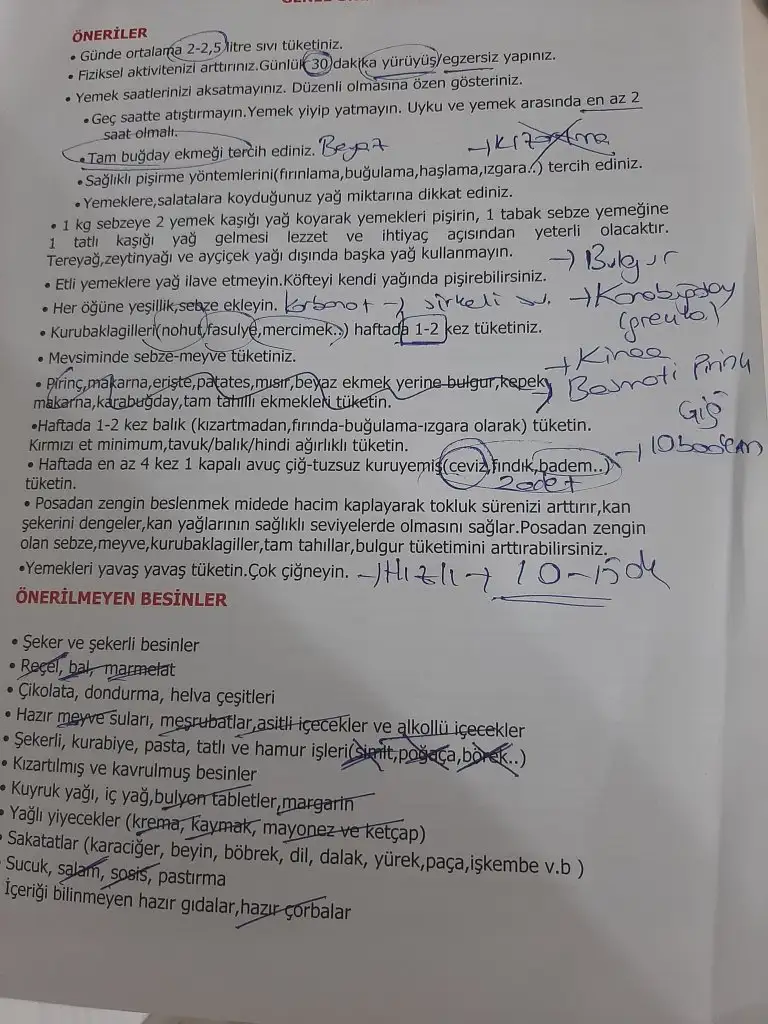 ÖNERİLER
• Günde ortalama 2-2,5 litre sıvı tüketiniz.
• Fiziksel aktivitenizi arttırınız.Günlük 30 dakika yürüyüş/egzersiz yapınız.
• Yemek saatlerinizi aksatmayınız. Düzenli olmasına özen gösteriniz.
• Geç saatte atıştırmayın.Yemek yiyip yatmayın. Uyku ve yemek arasında en az 2
saat olmalı.
• Tam buğday ekmeği tercih ediniz. Beyaz → Kızartma
• Sağlıklı pişirme yöntemlerini(fırınlama,buğulama,haşlama,ızgara..) tercih ediniz.
• Yemeklere,salatalara koyduğunuz yağ miktarına dikkat ediniz.
• 1 kg sebzeye 2 yemek kaşığı yağ koyarak yemekleri pişirin, 1 tabak sebze yemeğine
1 tatlı kaşığı yağ gelmesi lezzet ve ihtiyaç açısından yeterli olacaktır.
Tereyağ,zeytinyağı ve ayçiçek yağı dışında başka yağ kullanmayın.
→ Bulgur
• Etli yemeklere yağ ilave etmeyin.Köfteyi kendi yağında pişirebilirsiniz.
• Her öğüne yeşillik,sebze ekleyin. karbonat → sirkeli su. → Karabuğday
• Kurubaklagilleri(nohut,fasulye,mercimek..) haftada 1-2 kez tüketiniz.
• Mevsiminde sebze-meyve tüketiniz.
→ Kinoa
• Pirinç,makarna,erişte,patates,mısır,beyaz ekmek yerine bulgur,kepek Basmati Pirinç
makarna,karabuğday,tam tahıllı ekmekleri tüketin.
Çiğ
•Haftada 1-2 kez balık (kızartmadan,fırında-buğulama-ızgara olarak) tüketin.
Kırmızı et minimum,tavuk/balık/hindi ağırlıklı tüketin.
• Haftada en az 4 kez 1 kapalı avuç çiğ-tuzsuz kuruyemiş(ceviz,fındık,badem..) → 10 badem
tüketin. 2 adet
• Posadan zengin beslenmek midede hacim kaplayarak tokluk sürenizi arttırır,kan
şekerini dengeler,kan yağlarının sağlıklı seviyelerde olmasını sağlar.Posadan zengin
olan sebze,meyve,kurubaklagiller,tam tahıllar,bulgur tüketimini arttırabilirsiniz.
•Yemekleri yavaş yavaş tüketin.Çok çiğneyin. → Hızlı → 10-15 dk
ÖNERİLMEYEN BESİNLER
• Şeker ve şekerli besinler
• Reçel, bal, marmelat
• Çikolata, dondurma, helva çeşitleri
• Hazır meyve suları, meşrubatlar,asitli içecekler ve alkollü içecekler
• Şekerli, kurabiye, pasta, tatlı ve hamur işleri(simit,poğaça,börek..)
• Kızartılmış ve kavrulmuş besinler
• Kuyruk yağı, iç yağ,bulyon tabletler,margarin
• Yağlı yiyecekler (krema, kaymak, mayonez ve ketçap)
• Sakatatlar (karaciğer, beyin, böbrek, dil, dalak, yürek,paça,işkembe v.b )
Sucuk, salam, sosis, pastırma
İçeriği bilinmeyen hazır gıdalar,hazır çorbalar